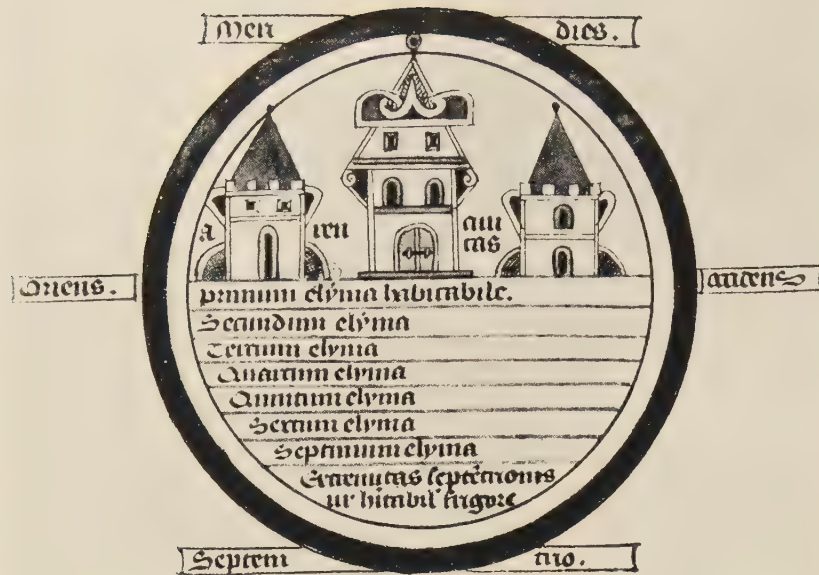 Meri dies.
aren civi
tas
Oriens. occidens
primum clyma habitabile.
Secundum clyma
Tertium clyma
Quartum clyma
Quintum clyma
Sextum clyma
Septimum clyma
Extremitas septentrionis
frigore
Septem trio.